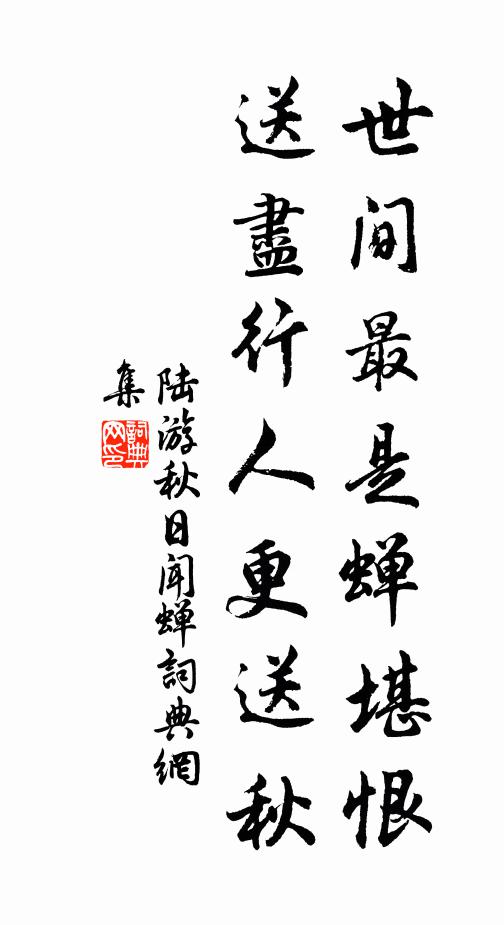 世间最是蝉堪恨
送盡行人更送秋
陆游秋日闻蝉詞典網
集
詞典
网印